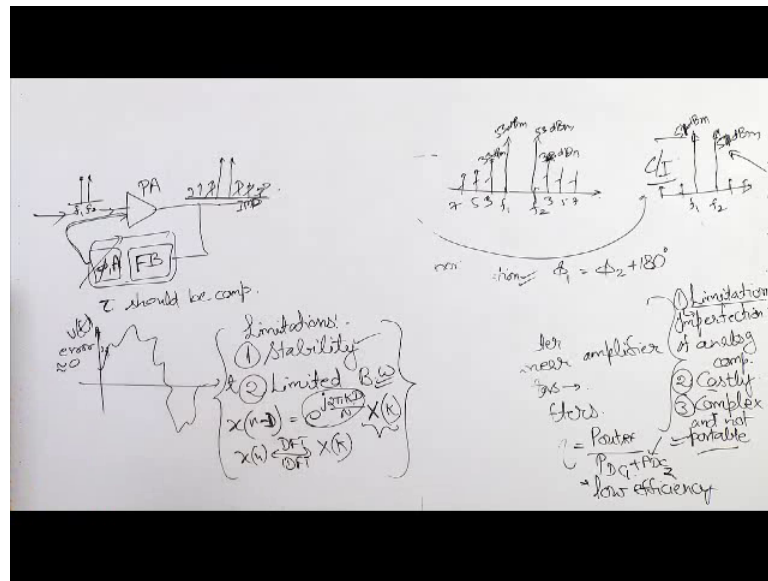 PA
f₁ f₂
IMD
φ, A
FB
τ should be comp.
v(t)
error
≈0
t
Limitations:
① Stability
② Limited B.W
x(n-D) = e^(j2πKD/N) X(K)
x(n) DFT X(K)
IDFT
53dBm
53dBm
38dBm
38dBm
7 5 3 f₁ f₂ 3 5 7
C/I
f₁ f₂
φ₁ = φ₂ + 180°
near amplifier
① Limitation
Imperfection
of analog
comp.
② Costly
③ Complex
and not
portable
η = Pout
PDC₁ + PDC₂
low efficiency